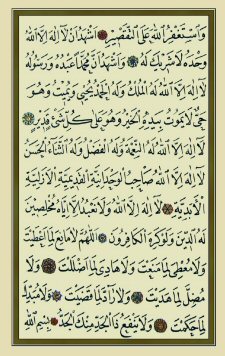 وَاَسْتَغْفِرُ اللهَ عَلَى التَّقْصِيرِ اَشْهَدُ اَنْ لَا اِلٰهَ اِلَّا اللهُ
وَحْدَهُ لَا شَرِيكَ لَهُ وَاَشْهَدُ اَنَّ مُحَمَّدًا عَبْدُهُ وَرَسُولُهُ
لَا اِلٰهَ اِلَّا اللهُ لَهُ الْمُلْكُ وَلَهُ الْحَمْدُ يُحْيِي وَيُمِيتُ وَهُوَ
حَيٌّ لَا يَمُوتُ بِيَدِهِ الْخَيْرُ وَهُوَ عَلٰى كُلِّ شَيْءٍ قَدِيرٌ
لَا اِلٰهَ اِلَّا اللهُ لَهُ النِّعْمَةُ وَلَهُ الْفَضْلُ وَلَهُ الثَّنَاءُ الْحَسَنُ
لَا اِلٰهَ اِلَّا اللهُ صَاحِبُ الْوَحْدَانِيَّةِ الْقَدِيمِيَّةِ الْاَزَلِيَّةِ
الْاَبَدِيَّةِ لَا اِلٰهَ اِلَّا اللهُ وَلَا نَعْبُدُ اِلَّا اِيَّاهُ مُخْلِصِينَ
لَهُ الدِّينَ وَلَوْ كَرِهَ الْكَافِرُونَ اَللّٰهُمَّ لَا مَانِعَ لِمَا اَعْطَيْتَ
وَلَا مُعْطِيَ لِمَا مَنَعْتَ وَلَا هَادِيَ لِمَا اَضْلَلْتَ وَلَا
مُضِلَّ لِمَا هَدَيْتَ وَلَا رَادَّ لِمَا قَضَيْتَ وَلَا مُبَدِّلَ
لِمَا حَكَمْتَ وَلَا يَنْفَعُ ذَا الْجَدِّ مِنْكَ الْجَدُّ بِسْمِ اللهِ